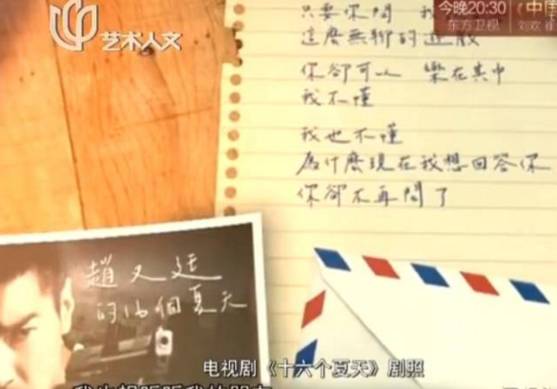 艺术人文
今晚20:30 《中国
东方卫视 刘欢
只要你問 我
這麼無聊的遊戲
你卻可以 樂在其中
我不懂
我也不懂
為什麼現在我想回答你
你卻不再問了
趙又廷
的16個夏天
电视剧《十六个夏天》剧照